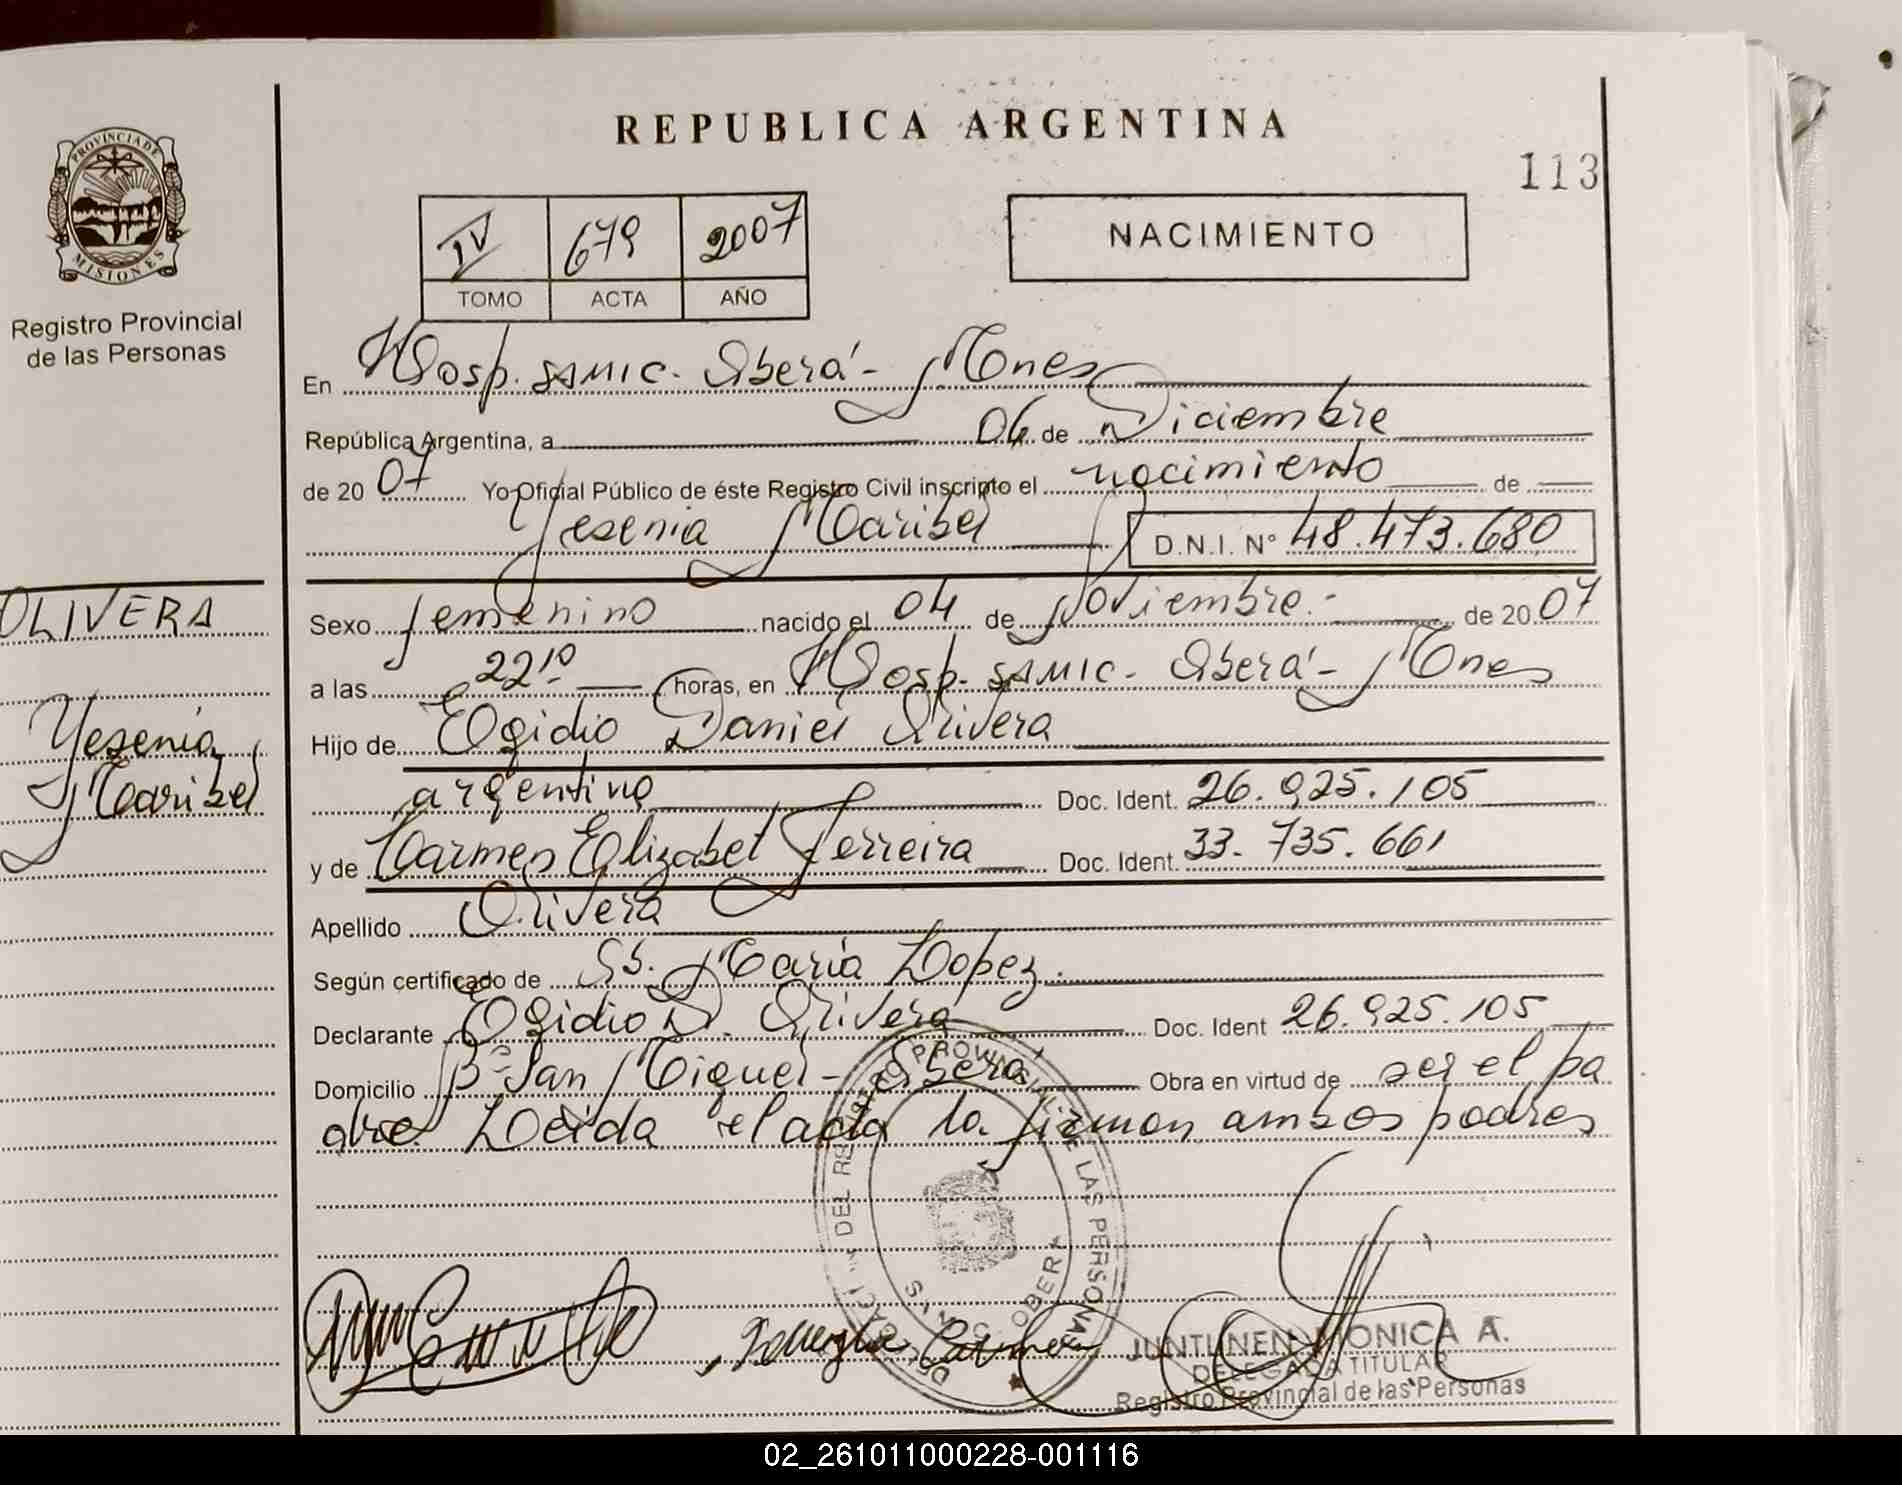 REPUBLICA ARGENTINA
113
PROVINCIA DE MISIONES
Registro Provincial
de las Personas
IV 679 2007
TOMO ACTA AÑO
NACIMIENTO
En Hosp. SAMIC - Oberá - Mnes
República Argentina, a 06 de Diciembre
de 20 07 Yo Oficial Público de éste Registro Civil inscripto el nacimiento de
Yesenia Maribel D.N.I. Nº 48.473.680
OLIVERA
Yesenia
Maribel
Sexo femenino nacido el 04 de Noviembre.- de 20 07
a las 22¹⁰ horas, en Hosp. SAMIC - Oberá - Mnes
Hijo de Egidio Daniel Olivera
argentino Doc. Ident. 26.925.105
y de Carmen Elizabet Ferreira Doc. Ident. 33.735.661
Apellido Olivera
Según certificado de María Lopez.
Declarante Egidio D. Olivera Doc. Ident 26.925.105
Domicilio Bº San Miguel - Oberá Obra en virtud de ser el pa
dre Leida el acta la firman ambos padres
DEL REGISTRO PROVINCIAL DE LAS PERSONAS
JUNTUNEN MONICA A.
DELEGADA TITULAR
Registro Provincial de las Personas
02_261011000228-001116